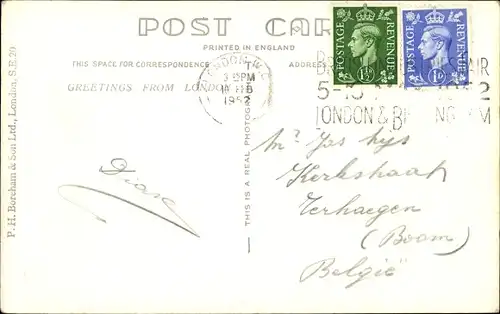 POST CAR
PRINTED IN ENGLAND
THIS SPACE FOR CORRESPONDENCE
ADDRES
GREETINGS FROM LONDON
LONDON W.
3 15PM
FEB
1952
POSTAGE
REVENUE
1½D
POSTAGE
REVENUE
1D
AIR
5-
2
LONDON & B NGHAM
THIS IS A REAL PHOTOG
P. H. Boreham & Son Ltd., London, S.E.20.
Mr Jos
Kerkstraat
Terhaegen
(Boom)
België